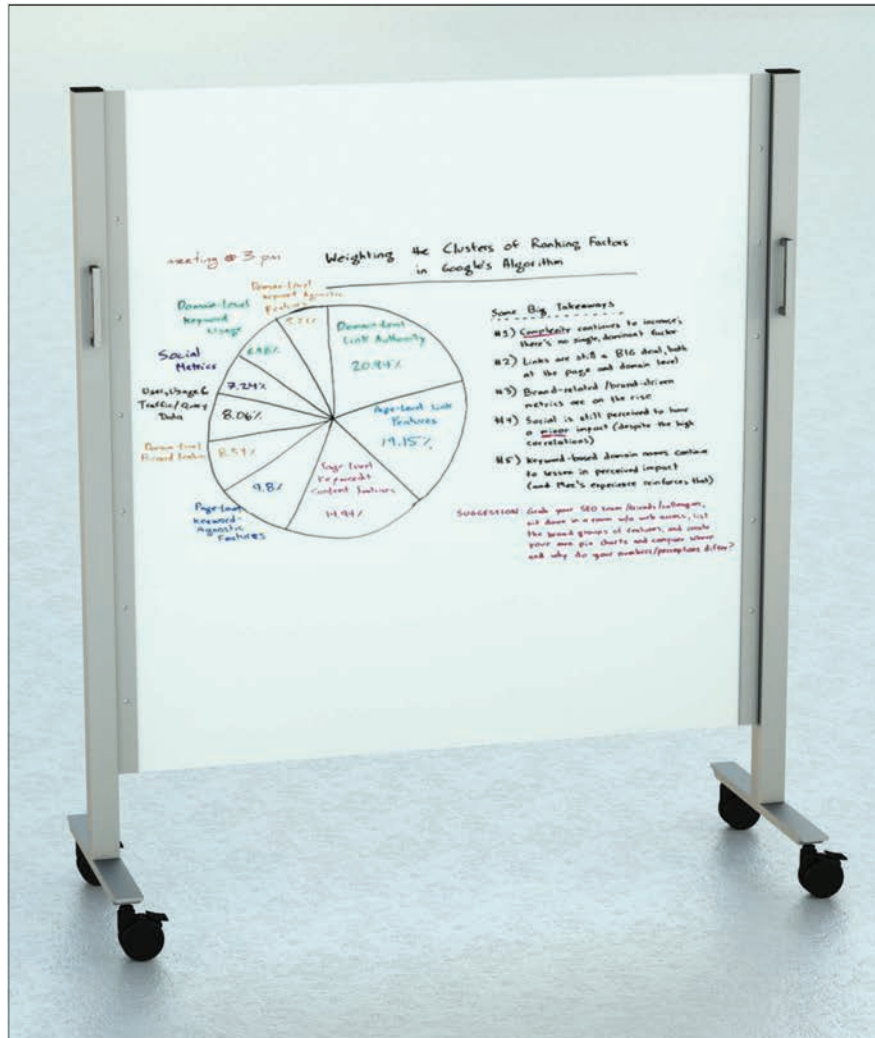 meeting @ 3 pm
Weighting the Clusters of Ranking Factors
in Google's Algorithm
Domain-Level
Keyword Agnostic
Features
5.21%
Domain-Level
Keyword
Usage
6.98%
Social
Metrics
7.24%
User, Usage &
Traffic/Query
Data
8.06%
Domain-Level
Brand Features
8.59%
Page-Level
Keyword-
Agnostic
Features
9.8%
Page-Level
Keyword &
Content Features
14.94%
Page-Level Link
Features
19.15%
Domain-Level
Link Authority
20.94%
Some Big Takeaways
#1) Complexity continues to increase;
there's no single, dominant factor
#2) Links are still a BIG deal, both
at the page and domain level
#3) Brand-related/brand-driven
metrics are on the rise
#4) Social is still perceived to have
a minor impact (despite the high
correlations)
#5) Keyword-based domain names continue
to lessen in perceived impact
(and Moz's experience reinforces that)
SUGGESTION: Grab your SEO team/friends/colleagues,
sit down in a room w/o web access, list
the broad groups of features, and create
your own pie charts and compare where
and why do your numbers/perceptions differ?